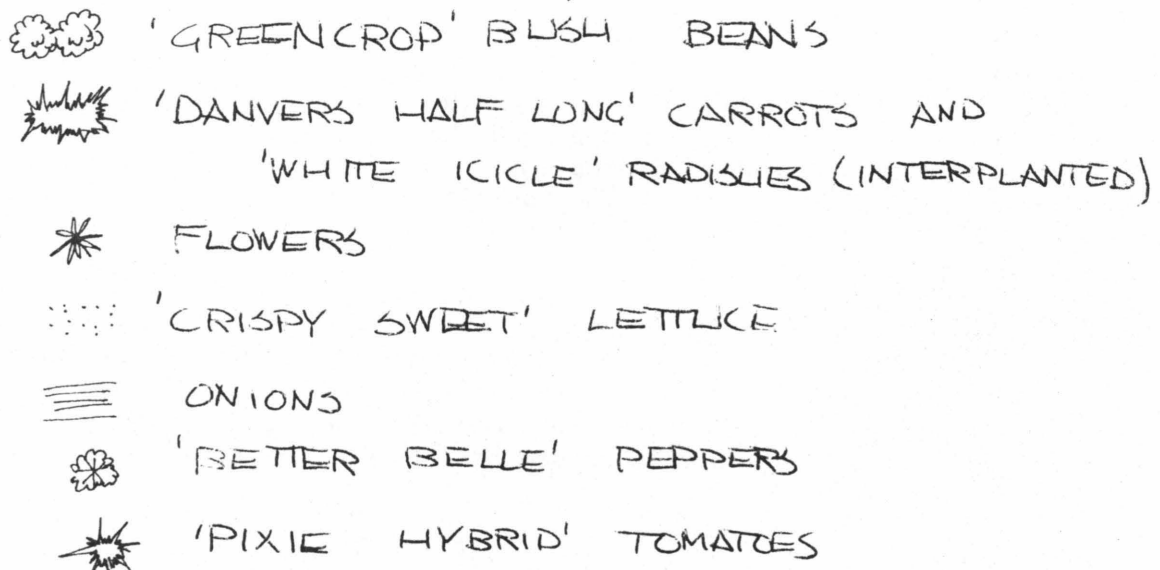 'GREENCROP' BUSH BEANS
'DANVERS HALF LONG' CARROTS AND
'WHITE ICICLE' RADISHES (INTERPLANTED)
FLOWERS
'CRISPY SWEET' LETTUCE
ONIONS
'BETTER BELLE' PEPPERS
'PIXIE HYBRID' TOMATOES